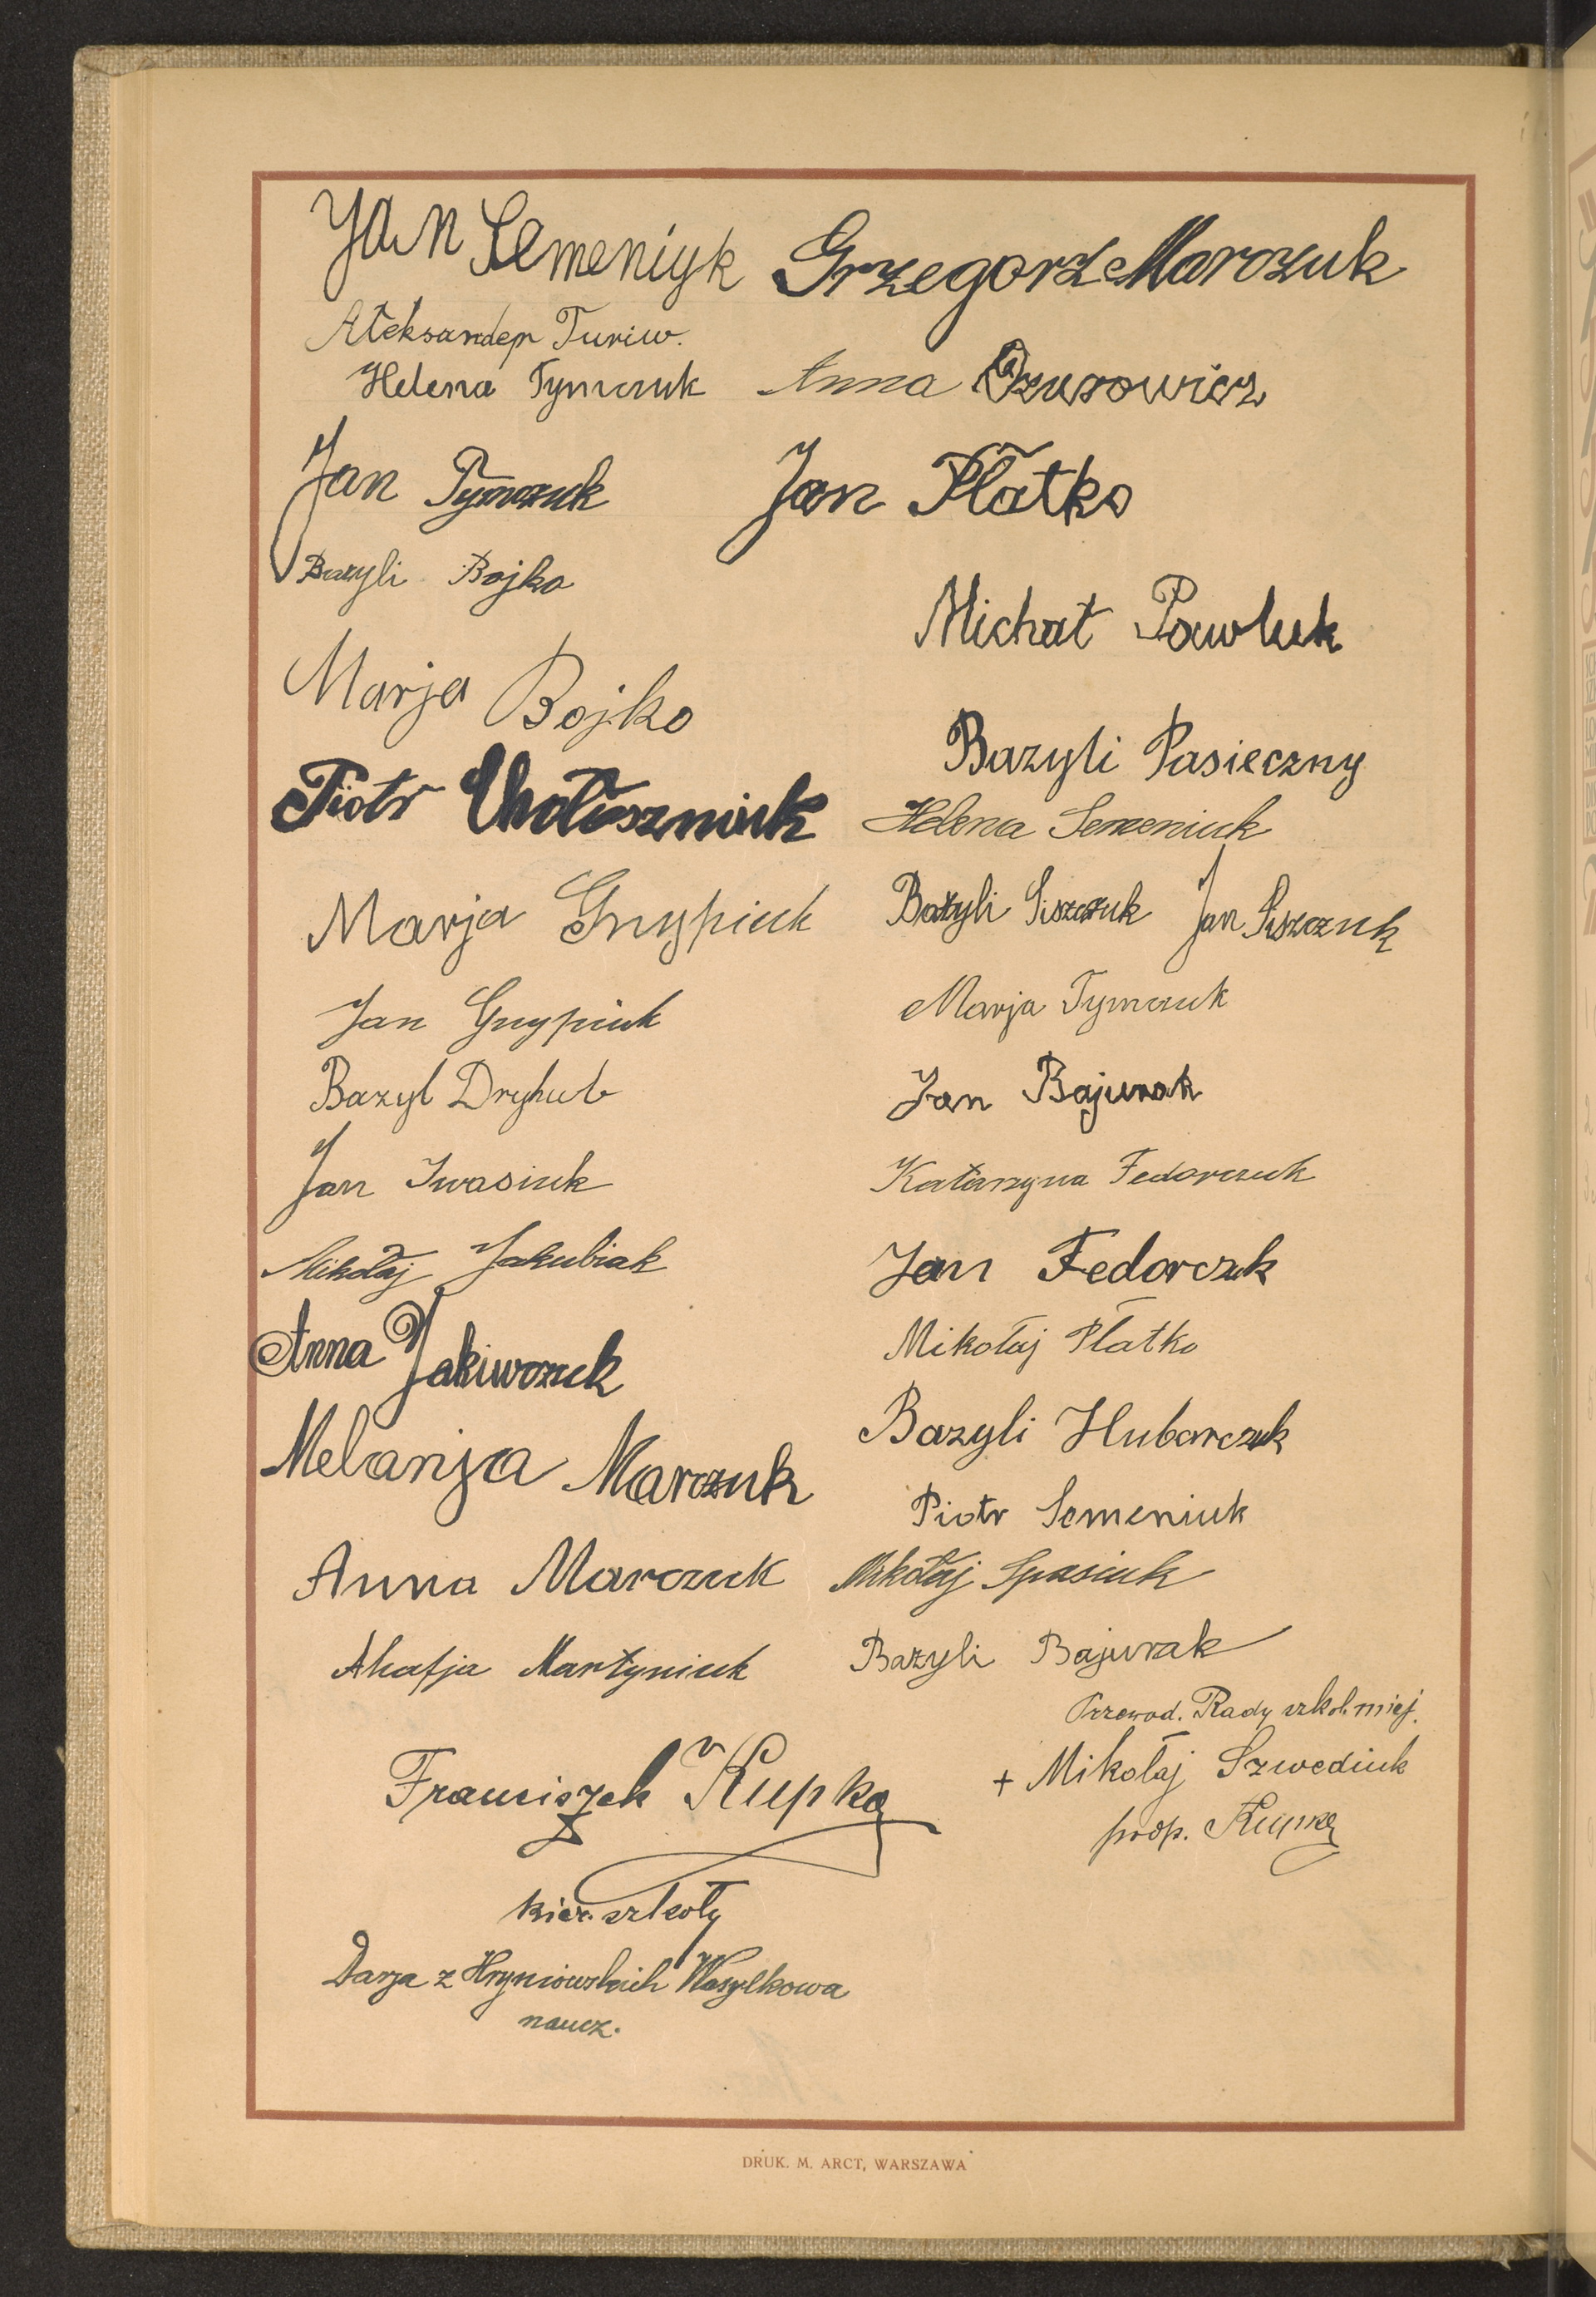 Jan Semeniyk
Aleksander Turiw.
Helena Tymczuk
Jan Tymczuk
Bazyli Bojko
Marja Bojko
Piotr Chołoszniuk
Marja Gnypiuk
Jan Gnypiuk
Bazyl Dryhub
Jan Iwasiuk
Mikołaj Jakubiak
Anna Jakiwczuk
Melanja Marczuk
Anna Marczuk
Ahafja Martyniuk
Franciszek Kupka
kier. szkoły
Darja z Hryniowskich Wasylkowa
naucz.
Grzegorz Marczuk
Anna
Jan Płatko
Michał Pawluk
Bazyli Pasieczny
Helena Semeniuk
Bazyli Siszczuk Jan Siszczuk
Marja Tymczuk
Jan Bajurak
Katarzyna Fedorczuk
Jan Fedorczuk
Mikołaj Płatko
Bazyli Hubarczuk
Piotr Semeniuk
Mikołaj Spasiuk
Bazyli Bajurak
Przewod. Rady szkol. miej.
+ Mikołaj Szwediuk
podp. Kupka
DRUK. M. ARCT, WARSZAWA